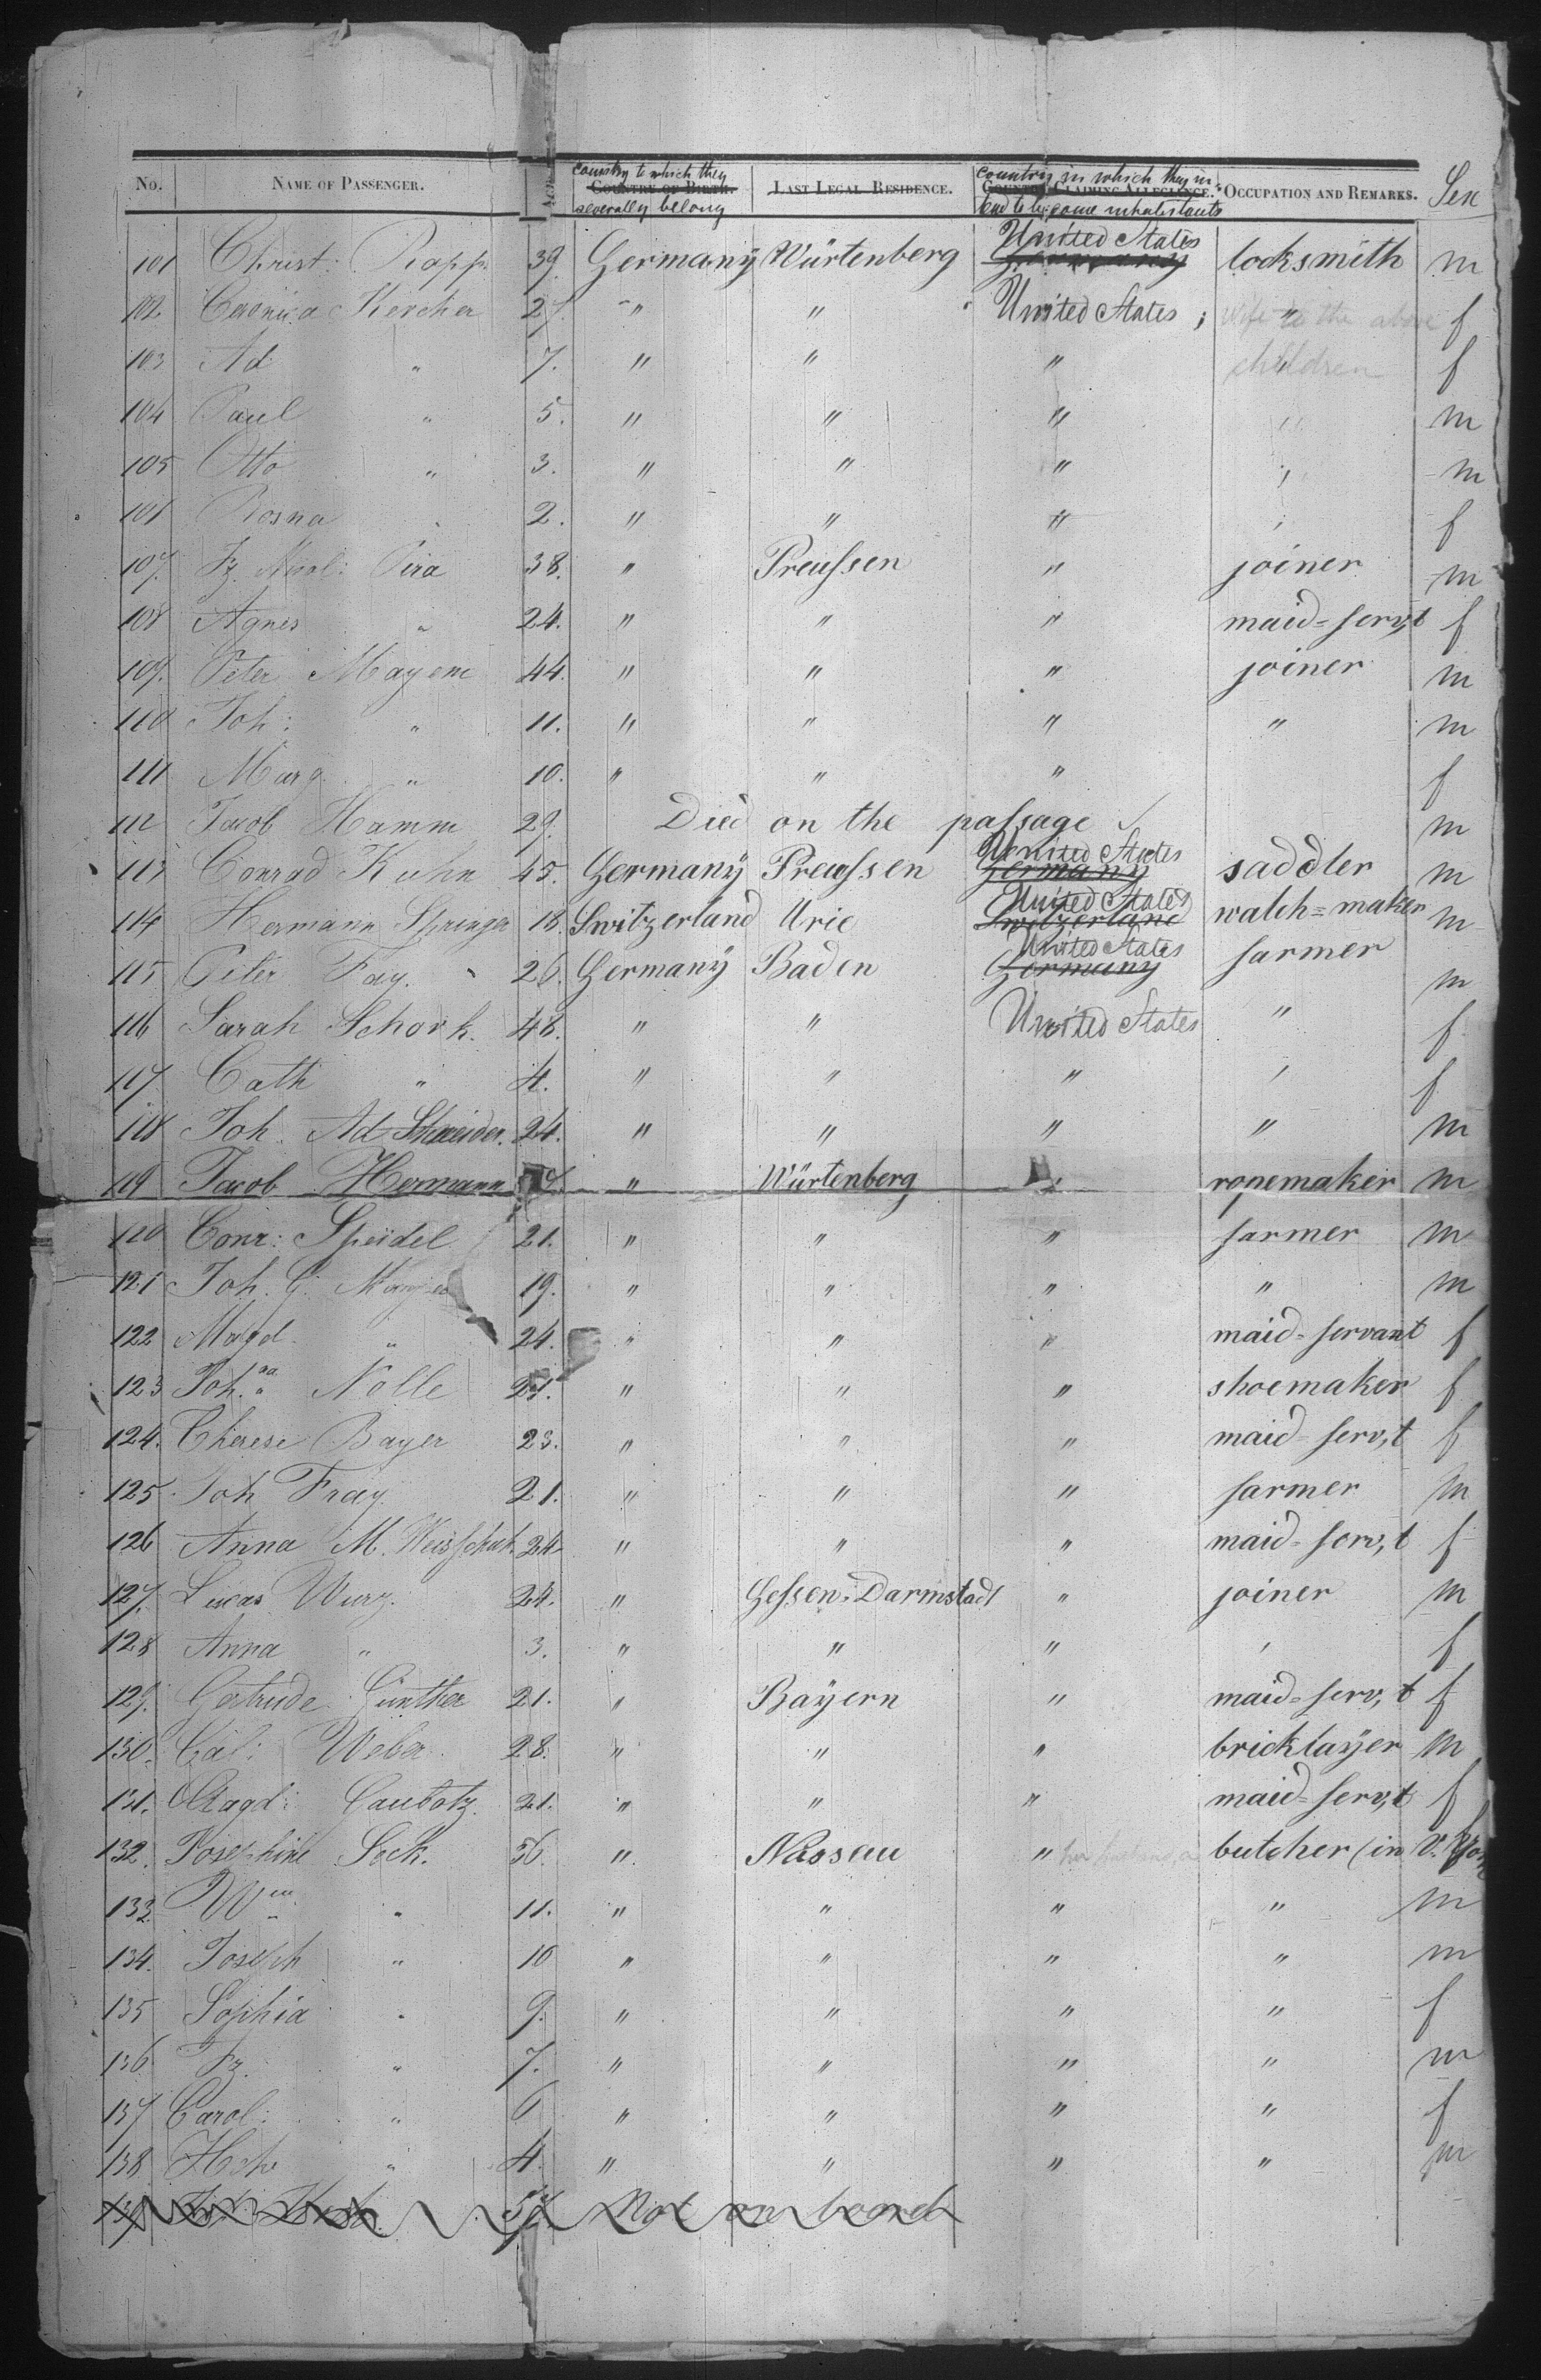 No. NAME OF PASSENGER. AGE country to which they COUNTRY OF BIRTH. severally belong LAST LEGAL RESIDENCE. country in which they in- COUNTRY CLAIMING ALLEGIANCE. tend to become inhabitants OCCUPATION AND REMARKS. Sex
101 Christ: Rapp 39. Germanÿ Würtenberg United States Germany locksmith m
102 Kercher 27. " " United States ; wife to the above f
103 Ad " 7. " " " children f
104 Paul " 5. " " " " m
105 Otto " 3. " " " " m
101 Rosna " 2. " " " " f
107. Fz. Nicol: Pira 38. " Preussen " joiner m
108 Agnes " 24. " " " maid=serv,t f
109. Peter Mayem 44. " " " joiner m
110 Joh: " 11. " " " " m
111 Marg. " 10. " " " f
112 Jacob Hamm 29. Died on the passage m
113 Conrad Kuhn 45. Germanÿ Preussen United States Germany saddler m
114 Hermann Springer 18. Switzerland Urie United States Switzerland watch=maker m
115 Peter Fay. 26. Germanÿ Baden United States Germany farmer m
116 Sarah Schork. 48. " " United States " f
117 Cath " 4. " " " " f
118 Joh. Ad Schneider. 24. " " " " m
119 Jacob Hermann " Würtenberg " ropemaker m
120 Conr: Speidel 21. " " " farmer m
121 Joh. G. 19. " " " " m
122 Magd. " 24. " " " maid=servant f
123 Joh.na Nolle 21. " " " shoemaker f
124. Therese Bayer 23. " " " maid=serv,t f
125 Joh Fray. 21. " " " farmer m
126 Anna M. 24 " " " maid=serv,t f
127. Lucas Wurz. 24. " Hessen-Darmstadt " joiner m
128 Anna " 3. " " " " f
129. Gertrude Günther 21. " Bayern " maid=serv,t f
130. Weber 28. " " " bricklayer m
131. Magd: 21. " " " maid=serv,t f
132. Josephine Sock. 36. " Nassau " her husband, a butcher (in N. York
133. Wm " 11. " " " " m
134. Joseph " 10 " " " " m
135 Sophia " 9. " " " " f
136 Fz. " 7. " " " " m
137 Carol: " 6 " " " " f
138 " 4. " " " " m
139 Not on board